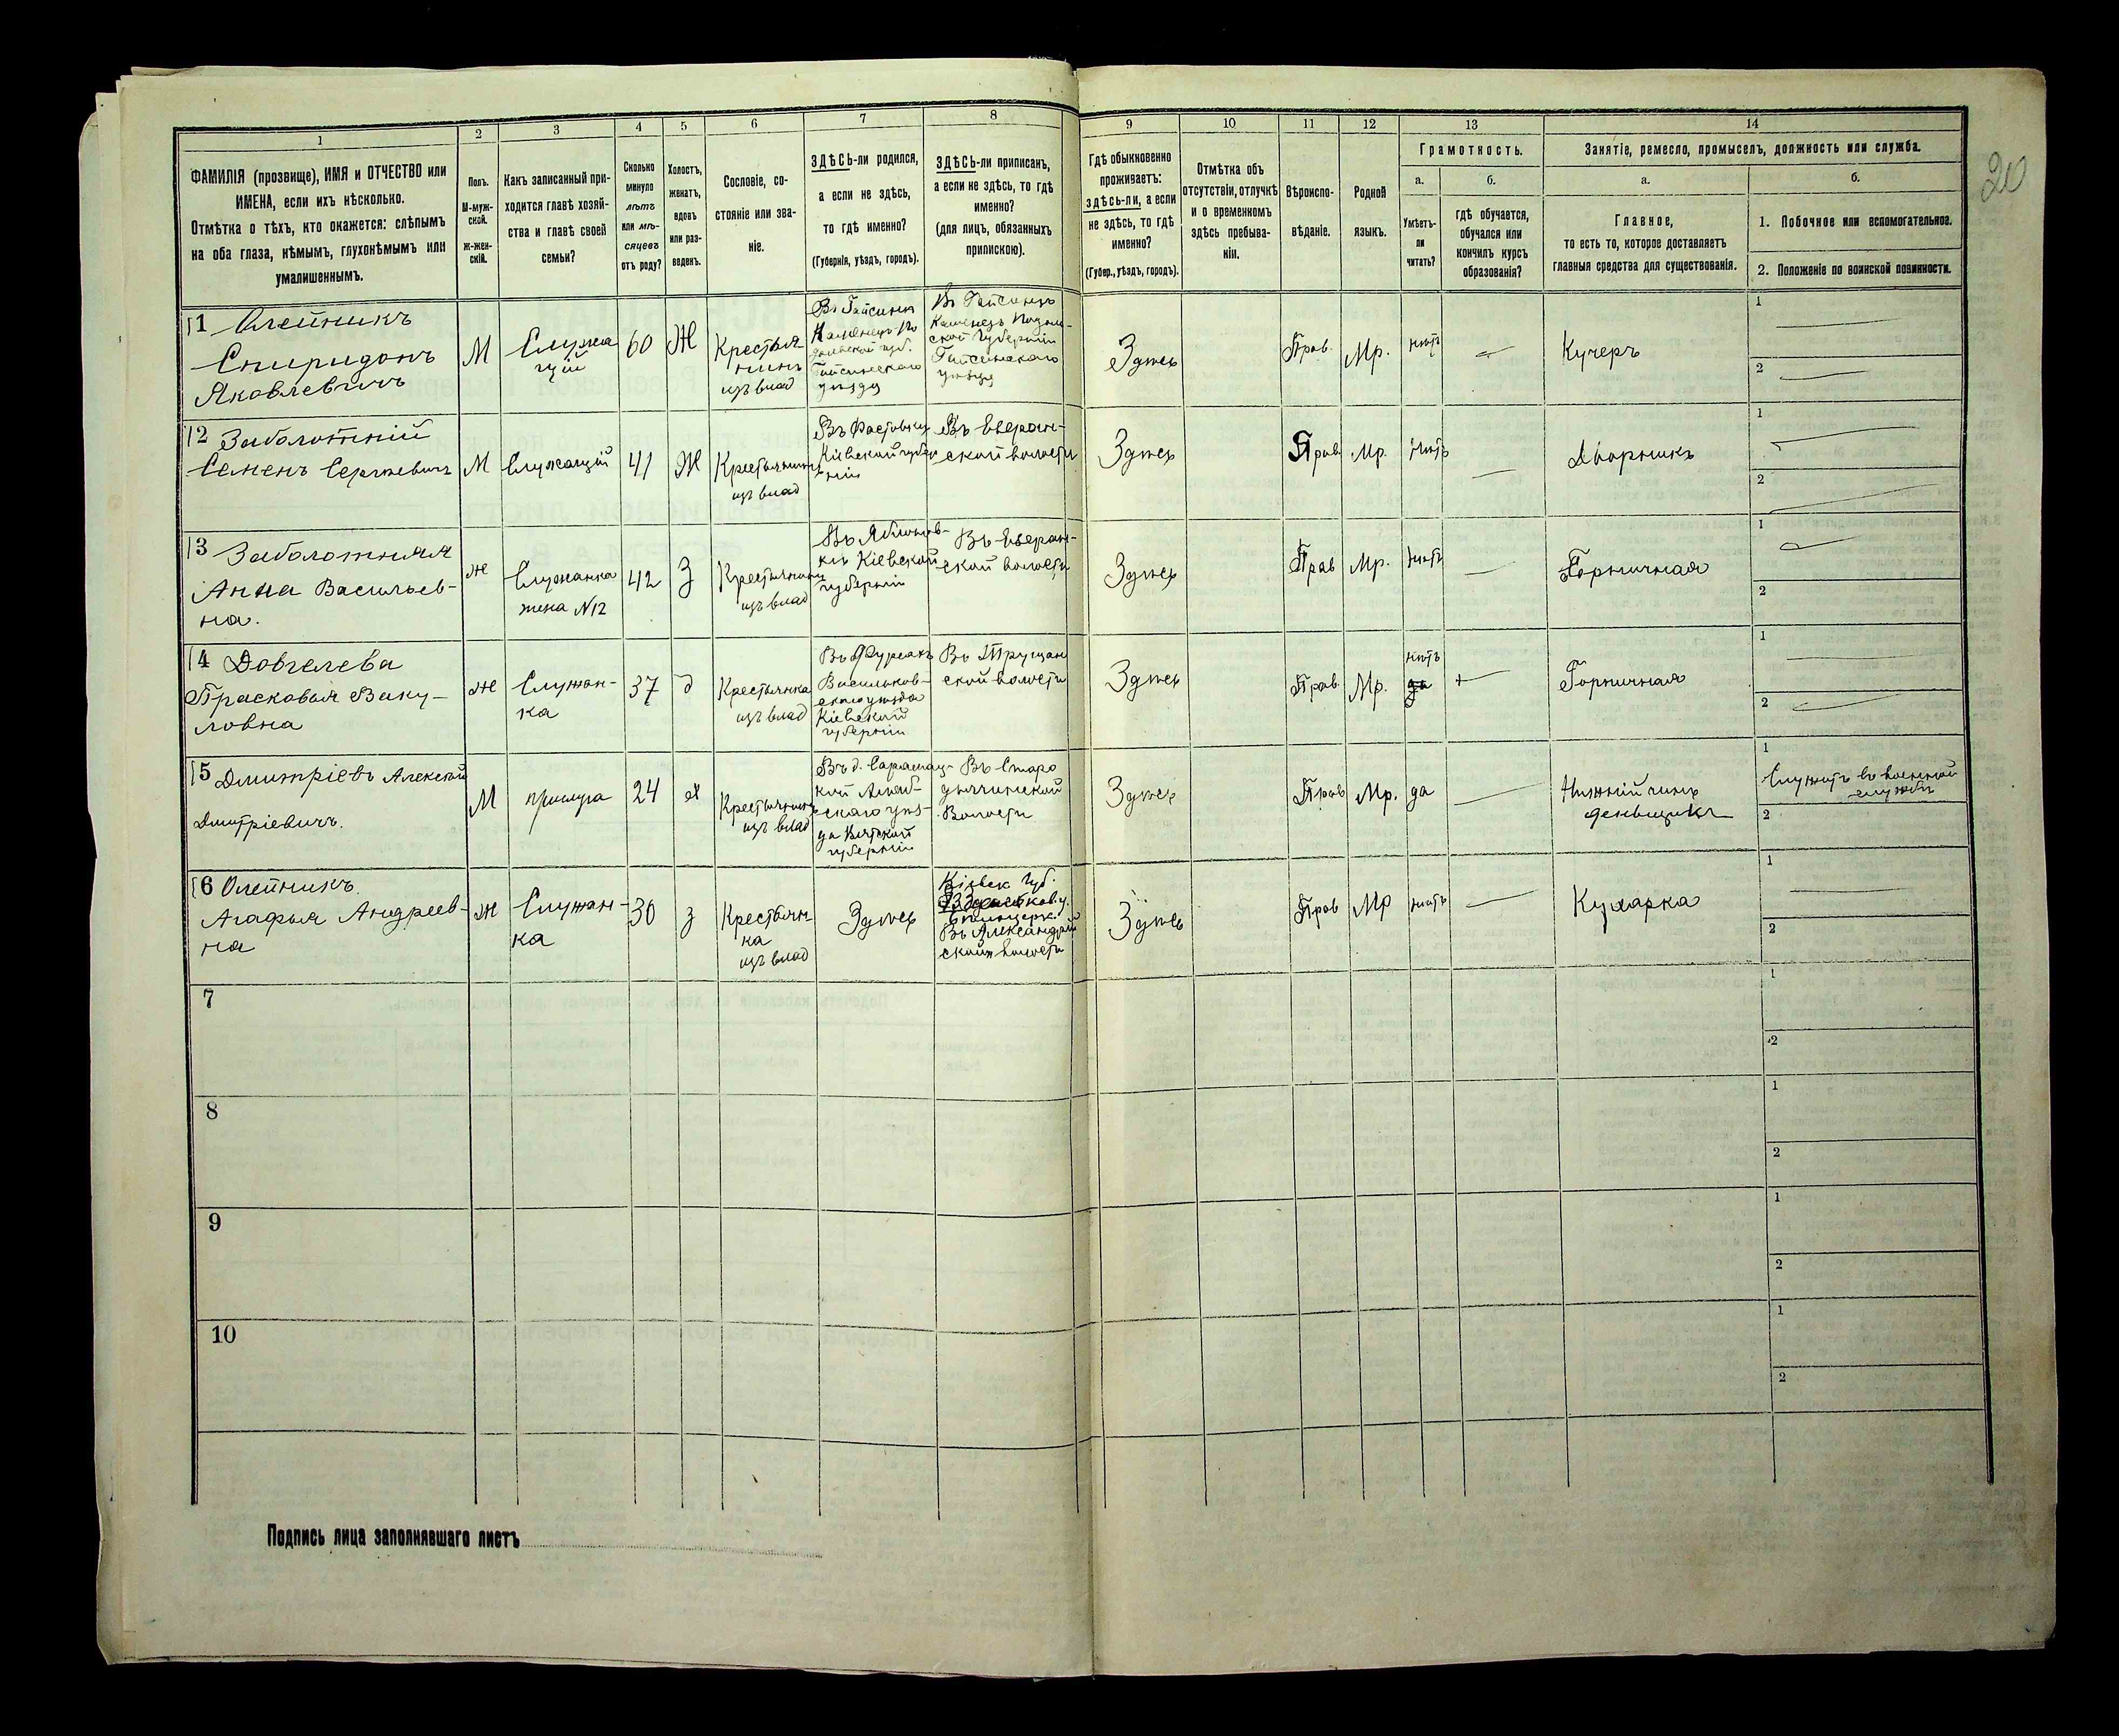 20
1
2
3
4
5
6
7
8
9
10
11
12
13
14
ФАМИЛІЯ (прозвище), ИМЯ и ОТЧЕСТВО или
ИМЕНА, если ихъ нѣсколько.
Отмѣтка о тѣхъ, кто окажется: слѣпымъ
на оба глаза, нѣмымъ, глухонѣмымъ или
умалишеннымъ.
Полъ.
М-муж-
ской.
ж-жен-
скій.
Какъ записанный при-
ходится главѣ хозяй-
ства и главѣ своей
семьи?
Сколько
минуло
лѣтъ
или мѣ-
сяцевъ
отъ роду?
Холостъ,
женатъ,
вдовъ
или раз-
веденъ.
Сословіе, со-
стояніе или зва-
ніе.
ЗДѢСЬ-ли родился,
а если не здѣсь,
то гдѣ именно?
(Губернія, уѣздъ, городъ).
ЗДѢСЬ-ли приписанъ,
а если не здѣсь, то гдѣ
именно?
(для лицъ, обязанныхъ
припискою).
Гдѣ обыкновенно
проживаетъ:
здѣсь-ли, а если
не здѣсь, то гдѣ
именно?
(Губер., уѣздъ, городъ).
Отмѣтка объ
отсутствіи, отлучкѣ
и о временномъ
здѣсь пребыва-
ніи.
Вѣроиспо-
вѣданіе.
Родной
языкъ.
Грамотность.
а.
Умѣетъ-
ли
читать?
б.
гдѣ обучается,
обучался или
кончилъ курсъ
образованія?
Занятіе, ремесло, промыселъ, должность или служба.
а.
Главное,
то есть то, которое доставляетъ
главныя средства для существованія.
б.
1. Побочное или вспомогательное.
2. Положеніе по воинской повинности.
11 Олейникъ
Спиридонъ
Яковлевичъ
М
Служа
щій
60
Ж
Крестья
нинъ
изъ влад
Въ Гайсинѣ
Каменецъ По
дольской губ.
Гайсинскаго
уѣзда
Въ Гайсинѣ
Каменецъ Подоль-
ской Губерніи
Гайсинскаго
уѣзда
Здѣсь
Прав.
Мр.
нѣтъ
Кучеръ
1
2
12 Заболотній
Семенъ Сергѣевичъ
М
Служащій
41
Ж
Крестьянинъ
изъ влад
Въ Фастовѣ
Кіевской губер
ніи
ской волости
Здѣсь
Прав
Мр.
Нѣтъ
Дворникъ
1
2
13 Заболотная
Анна Васильев-
на.
ж
Служанка
жена N12
42
З
Крестьянка
изъ влад
Въ Яблонов-
кѣ Кіевской
губерніи
ской волости
Здѣсь
Прав
Мр.
Нѣтъ
Горничная
1
2
14 Довгелева
Прасковья Ваку-
ловна
ж
Служан-
ка
37
д
Крестьянка
изъ влад
Въ Фурсахъ
Васильков-
скаго уѣзда
Кіевской
губерніи
ской волости
Здѣсь
Прав
Мр.
нѣтъ
да
Горничная
1
2
15 Дмитріевъ Алексѣй
Дмитріевичъ.
М
прислуга
24
х
Крестьянинъ
изъ влад
скаго уѣз-
да Вятской
губерніи
Въ Старо
Волости
Здѣсь
Прав
Мр.
да
Нижній чинъ
деньщикъ
1
Служитъ въ военной
службѣ
2
16 Олейникъ
Агафья Андреев-
на
Ж
Служан-
ка
30
з
Крестьян-
ка
изъ влад
Здѣсь
Кіевск Губ.
Бѣлоцерк
Въ Александрій
ской волости
Здѣсь
Прав
Мр
нѣтъ
Кухарка
1
2
7
1
2
8
1
2
9
1
2
10
1
2
Подпись лица заполнявшаго листъ